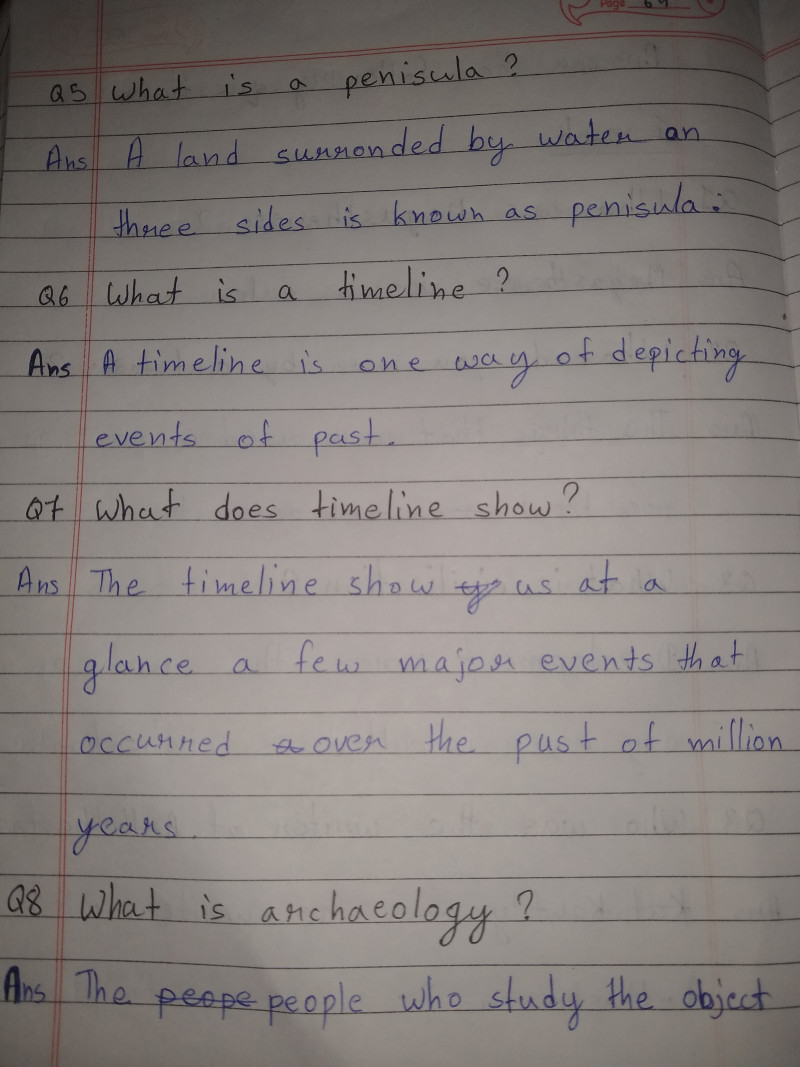 Page 69
Q5 What is a penisula?
Ans A land surronded by water an
three sides is known as penisula.
Q6 What is a timeline?
Ans A timeline is one way of depicting
events of past.
Q7 What does timeline show?
Ans The timeline show us at a
glance a few major events that
occurred over the past of million
years.
Q8 What is archaeology?
Ans The peope people who study the object